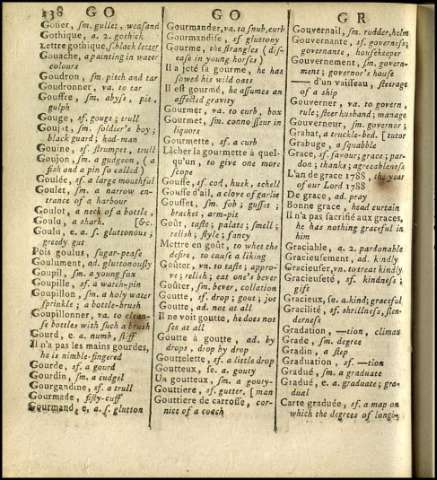 238 GO GO GR
Gosier, sm. gullet, weasand
Gothique, a. 2. gothick
Lettre gothique, f. black letter
Gouache, a painting in water
colours
Goudron, sm. pitch and tar
Goudronner, va. to tar
Gouffre, sm. abyss, pit,
gulph
Gouge, sf. gouge; trull
Goujat, sm. soldier's boy;
black guard; hod-man
Gouine, sf. strumpet, trull
Goujon, sm. a gudgeon, (a
fish and a pin so called)
Goulée, sf. a large mouthful
Goulet, sm. a narrow en-
trance of a harbour
Goulot, a neck of a bottle,
Goulu, a shark. [&c.
Goulu, e. a. s. gluttonous;
greedy gut
Pois goulus, sugar-pease
Goulument, ad. gluttonously
Goupil, sm. a young fox
Goupille, sf. a watch-pin
Goupillon, sm. a holy water
sprinkle; a bottle-brush
Goupillonner, va. to clean-
se bottles with such a brush
Gourd, e. a. numb, stiff
Il n'a pas les mains gourdes,
he is nimble-fingered
Gourde, sf. a gourd
Gourdin, sm. a cudgel
Gourgandine, sf. a trull
Gourmade, fisty-cuff
Gourmand, e. a. s. glutton
Gourmander, va. to snub, curb
Gourmandise, sf. gluttony
Gourme, the strangles (dis-
ease in young horses)
Il a jeté sa gourme, he has
sowed his wild oats
Il est gourmé, he assumes an
affected gravity
Gourmer, va. to curb, box
Gourmet, sm. connoisseur in
liquors
Gourmette, sf. a curb
Lâcher la gourmette à quel-
qu'un, to give one more
scope
Gousse, sf. cod, husk, schell
Gousse d'ail, a clove of garlic
Gousset, sm. fob; gusset;
bracket, arm-pit
Goût, taste; palate; smell;
relish; style; fancy
Mettre en goût, to whet the
desire, to cause a liking
Goûter, vn. to taste; appro-
ve; relish; eat one's bever
Goûter, sm. bever, collation
Goutte, sf. drop; gout; jot
Goutte, ad. not at all
Il ne voit goutte, he does not
see at all
Goutte à goutte, ad. by
drops, drop by drop
Gouttelette, sf. a little drop
Goutteux, se. a. gouty
Un goutteux, sm. a gouty-
Gouttiere, sf. gutter, [man
Gouttiere de carrosse, cor-
nice of a coach
Gouvernail, sm. rudder, helm
Gouvernante, sf. governess;
governante, housekeeper
Gouvernement, sm. govern-
ment; governor's house
— d'un vaisseau, steerage
of a ship
Gouverner, va. to govern,
rule; steer husband; manage
Gouverneur, sm. governor;
Grabat, a truckle-bed. [tutor
Grabuge, a squabble
Grace, sf. favour; grace; par-
don; thanks; agreeableness
L'an de grace 1788, the year
of our Lord 1788
De grace, ad. pray
Bonne grace, head curtain
Il n'a pas sacrifié aux graces,
he has nothing graceful in
him
Graciable, a. 2. pardonable
Gracieusement, ad. kindly
Gracieuser, vn. to treat kindly
Gracieuseté, sf. kindness;
gift
Gracieux, se. a. kind; graceful
Gracilité, sf. shrillness, slen-
derness
Gradation, —tion, climax
Grade, sm. degree
Gradin, a step
Graduation, sf —tion
Gradué, sm. a graduate
Gradué, e. a. graduate; gra-
dual
Carte graduée, sf. a map on
which the degrees of longi-